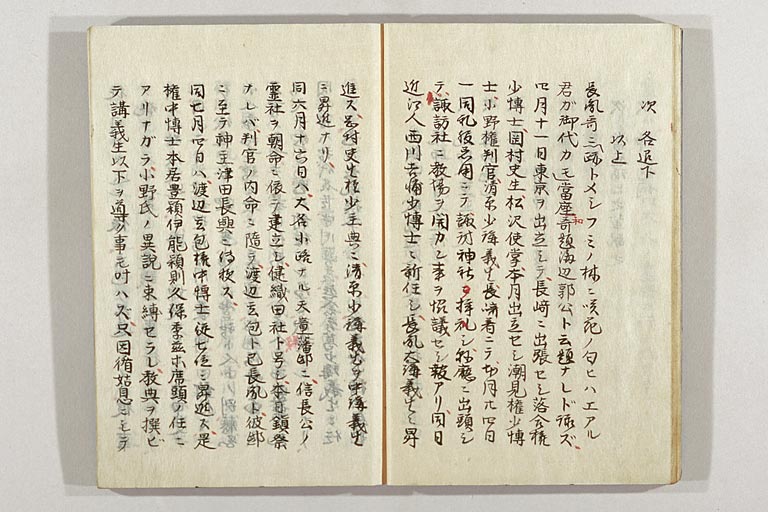 次 各退下
以上
長風哥ニ跡トメシフミノ林ニ咲花ノ匂ヒハエアル
君ガ御代カモ當座竒題海辺郭公ト云題ナレド除ズ
四月十一日東京ヲ出立シテ長﨑ニ出張セシ落合権
少博士岡村史生松沢使掌本月出立セシ潮見権少博
士小野権判官清原少講義生長﨑着ニテ四月廿四日
一同礼後呉服ニテ諏訪神社ヲ拝礼シ縣廳ニ出頭シ
テ諏訪社ニ教場ヲ開カン事ヲ恊議セシ報アリ同日
近江人西川吉輔少博士ニ新任シ長風大講義生ニ昇
進ス岡村史生権少主典ニ清原少講義生ヲ中講義生
ニ昇進ナリ
同六月十六日ハ大名小路ナル天童藩邸ニ信長公ノ
霊社ヲ朝命ニ依テ建立シ健織田社ト号シ本日鎮祭
ナレバ判官ノ内命ニ隨テ渡辺玄包ト已長風ト彼邸
ニ至テ神主津田長興ニ傳授ス
同七月四日ハ渡辺玄包権中博士従七位ニ昇進ス是
権中博士本居豊穎伊能穎則久保季茲ホ席頭ノ任ニ
アリナガラ小野氏ノ異説ニ束縛セラレ教典ヲ撰ビ
テ講義生以下ヲ導ク事モ叶ハズ只因循姑息ニモテ